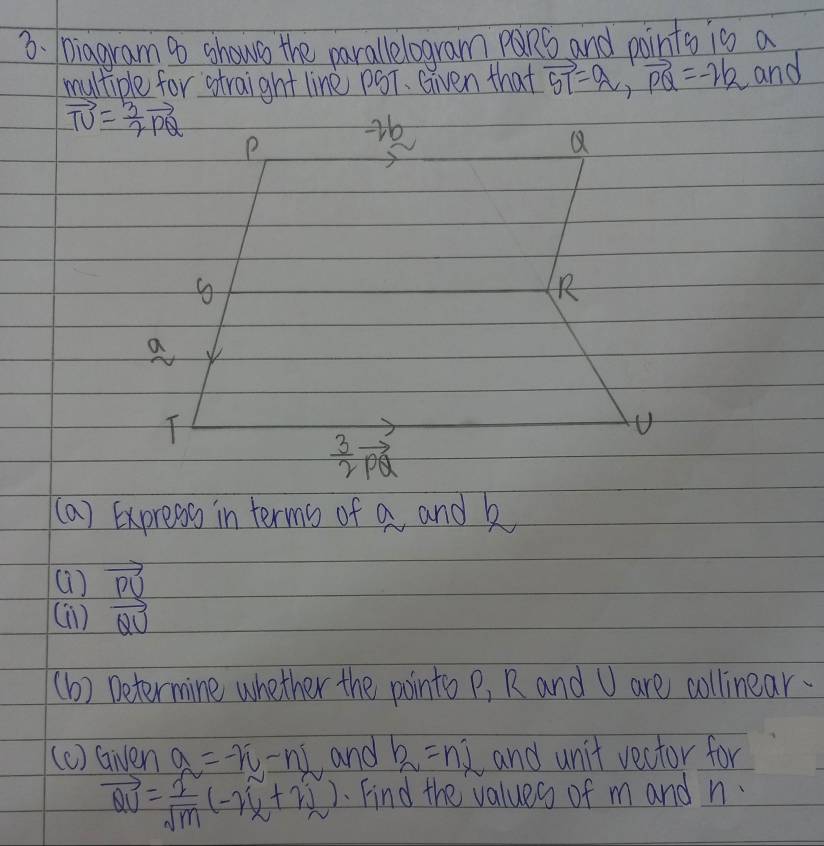 3. Diagram 8 shows the parallelogram PQRS and points is a
multiple for straight line PST. Given that ST⃗ = a̰, PQ⃗ = -2b̰ and
TU⃗ = 3/2 PQ⃗
-2b̰
P
Q
S
R
a̰
T
U
3/2 PQ⃗
(a) Express in terms of a̰ and b̰
(i) PU⃗
(ii) QU⃗
(b) Determine whether the points P, R and U are collinear.
(c) Given a̰ = -2ḭ - nj̰ and b̰ = nj̰ and unit vector for
QU⃗ = 1/√m (-2ḭ + 2j̰). Find the values of m and n.